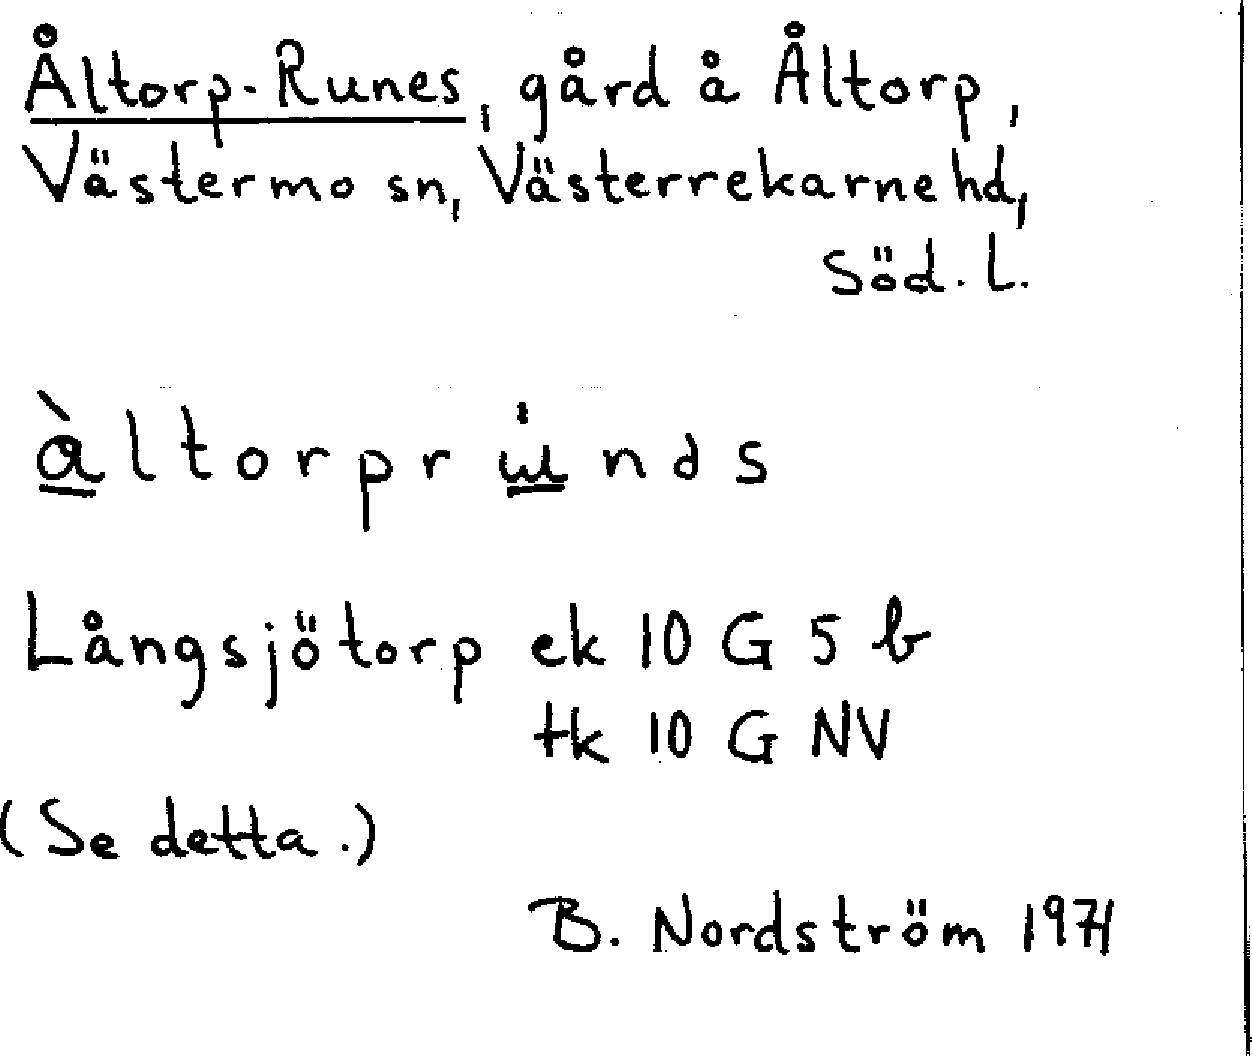 Åltorp-Runes, gård å Åltorp,
Västermo sn, Västerrekarne hd,
Söd. L.
å̀ltorprɯ̲̇nəs
Långsjötorp ek 10 G 5 b
tk 10 G NV
(Se detta.)
B. Nordström 1971